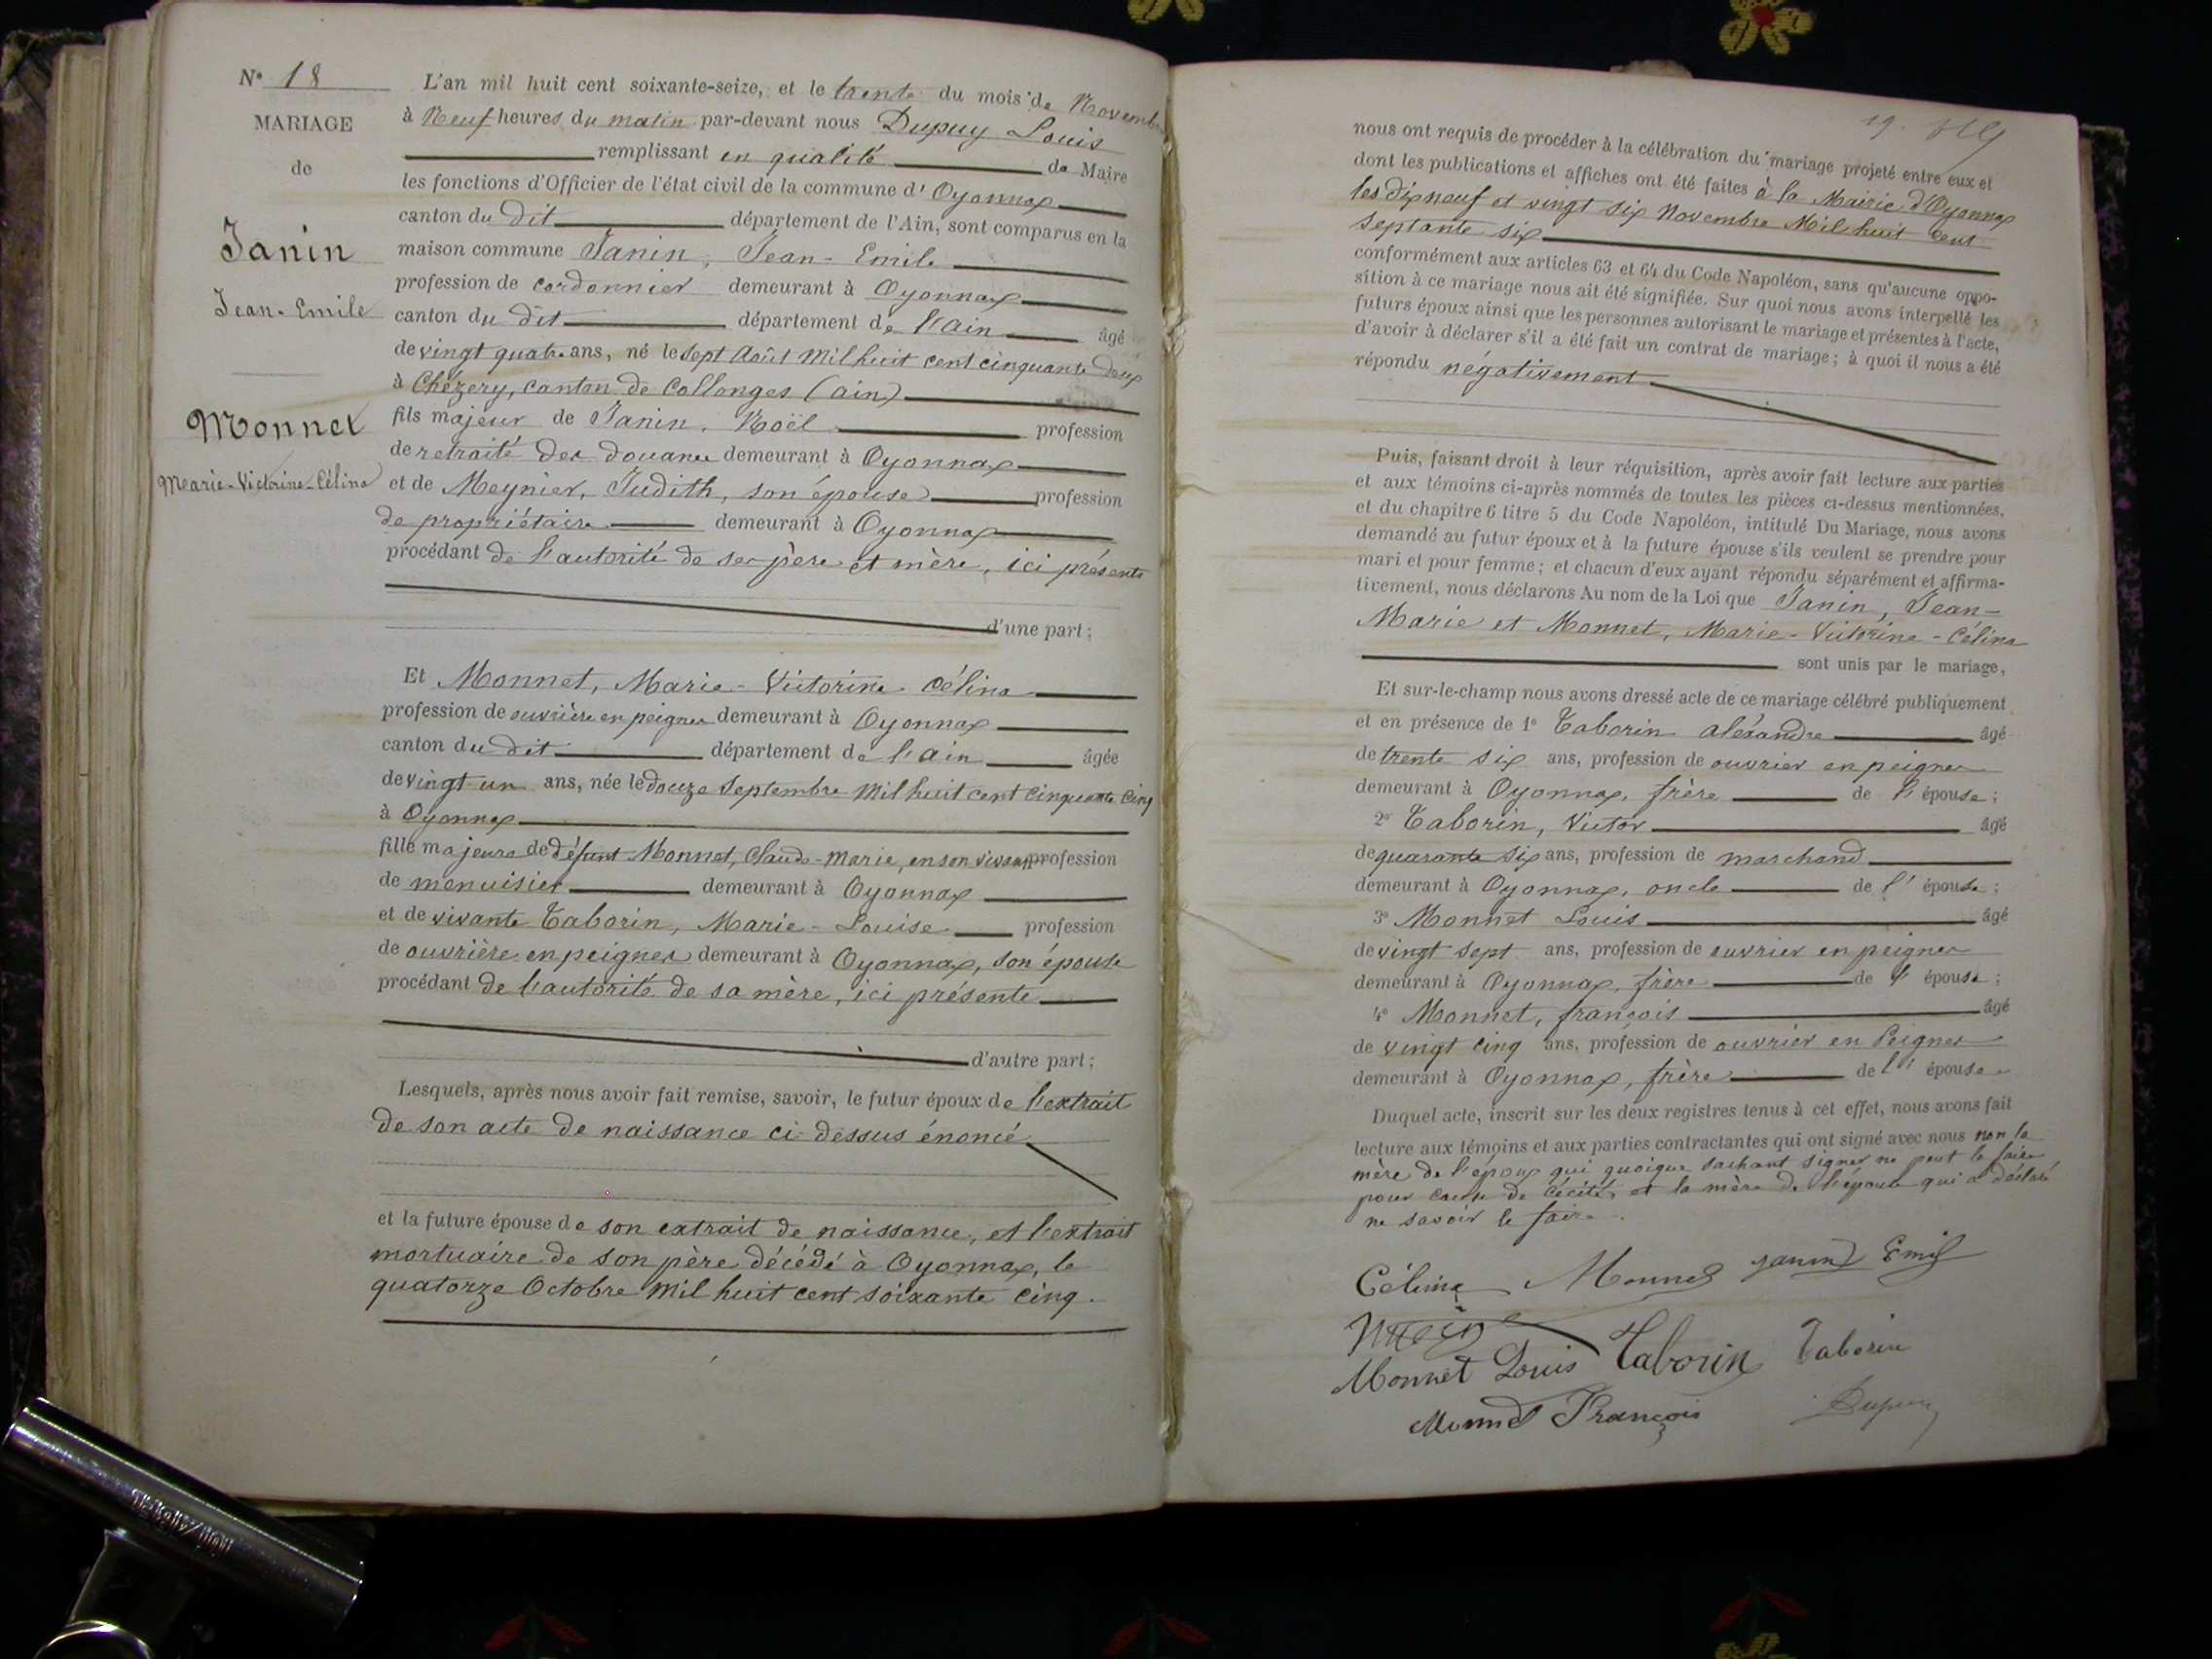 N° 18
MARIAGE
de
Janin
Jean-Emile
Monnet
Marie-Victorine-Célina
L'an mil huit cent soixante-seize, et le trente du mois de Novembre
à Neuf heures du matin par-devant nous Dupuy Louis
remplissant en qualité de Maire
les fonctions d'Officier de l'état civil de la commune d'Oyonnax
canton du dit département de l'Ain, sont comparus en la
maison commune Janin, Jean-Emile
profession de cordonnier demeurant à Oyonnax
canton du dit département de l'ain âgé
de vingt quatre ans, né le sept Août Mil huit cent cinquante deux
à Chézery, canton de Collonges (ain)
fils majeur de Janin, Noël profession
de retraité des douanes demeurant à Oyonnax
et de Meynier, Judith, son épouse profession
de propriétaire demeurant à Oyonnax
procédant de l'autorité de ses père et mère, ici présents
d'une part;
Et Monnet, Marie-Victorine Célina
profession de ouvrière en peignes demeurant à Oyonnax
canton du dit département de l'ain âgée
de vingt un ans, née le douze Septembre Mil huit cent cinquante cinq
à Oyonnax
fille majeure de défunt Monnet, Claude-Marie, en son vivant profession
de menuisier demeurant à Oyonnax
et de vivante Taborin, Marie-Louise profession
de ouvrière en peignes demeurant à Oyonnax, son épouse
procédant de l'autorité de sa mère, ici présente
d'autre part;
Lesquels, après nous avoir fait remise, savoir, le futur époux de l'extrait
de son acte de naissance ci-dessus énoncé
et la future épouse de son extrait de naissance, et l'extrait
mortuaire de son père décédé à Oyonnax, le
quatorze Octobre Mil huit cent soixante cinq.
19.
nous ont requis de procéder à la célébration du mariage projeté entre eux et
dont les publications et affiches ont été faites à la Mairie d'Oyonnax
les dix neuf et vingt six Novembre Mil huit cent
septante six
conformément aux articles 63 et 64 du Code Napoléon, sans qu'aucune oppo-
sition à ce mariage nous ait été signifiée. Sur quoi nous avons interpellé les
futurs époux ainsi que les personnes autorisant le mariage et présentes à l'acte,
d'avoir à déclarer s'il a été fait un contrat de mariage; à quoi il nous a été
répondu négativement
Puis, faisant droit à leur réquisition, après avoir fait lecture aux parties
et aux témoins ci-après nommés de toutes les pièces ci-dessus mentionnées,
et du chapitre 6 titre 5 du Code Napoléon, intitulé Du Mariage, nous avons
demandé au futur époux et à la future épouse s'ils veulent se prendre pour
mari et pour femme; et chacun d'eux ayant répondu séparément et affirma-
tivement, nous déclarons Au nom de la Loi que Janin, Jean-
Marie et Monnet, Marie-Victorine-Célina
sont unis par le mariage,
Et sur-le-champ nous avons dressé acte de ce mariage célébré publiquement
et en présence de 1° Taborin aléxandre âgé
de trente six ans, profession de ouvrier en peignes
demeurant à Oyonnax, frère de l'épouse;
2° Taborin, Victor âgé
de quarante six ans, profession de marchand
demeurant à Oyonnax, oncle de l'épouse;
3° Monnet Louis âgé
de vingt sept ans, profession de ouvrier en peignes
demeurant à Oyonnax, frère de l'épouse;
4° Monnet, françois âgé
de vingt cinq ans, profession de ouvrier en Peignes
demeurant à Oyonnax, frère de l'épouse
Duquel acte, inscrit sur les deux registres tenus à cet effet, nous avons fait
lecture aux témoins et aux parties contractantes qui ont signé avec nous non la
mère de l'époux qui quoique sachant signer ne peut le faire
pour cause de cécité, et la mère de l'épouse qui a déclaré
ne savoir le faire.
Célina Monnet Janin Emil
Monnet Louis Taborin Taborin
Monnet François Dupuy